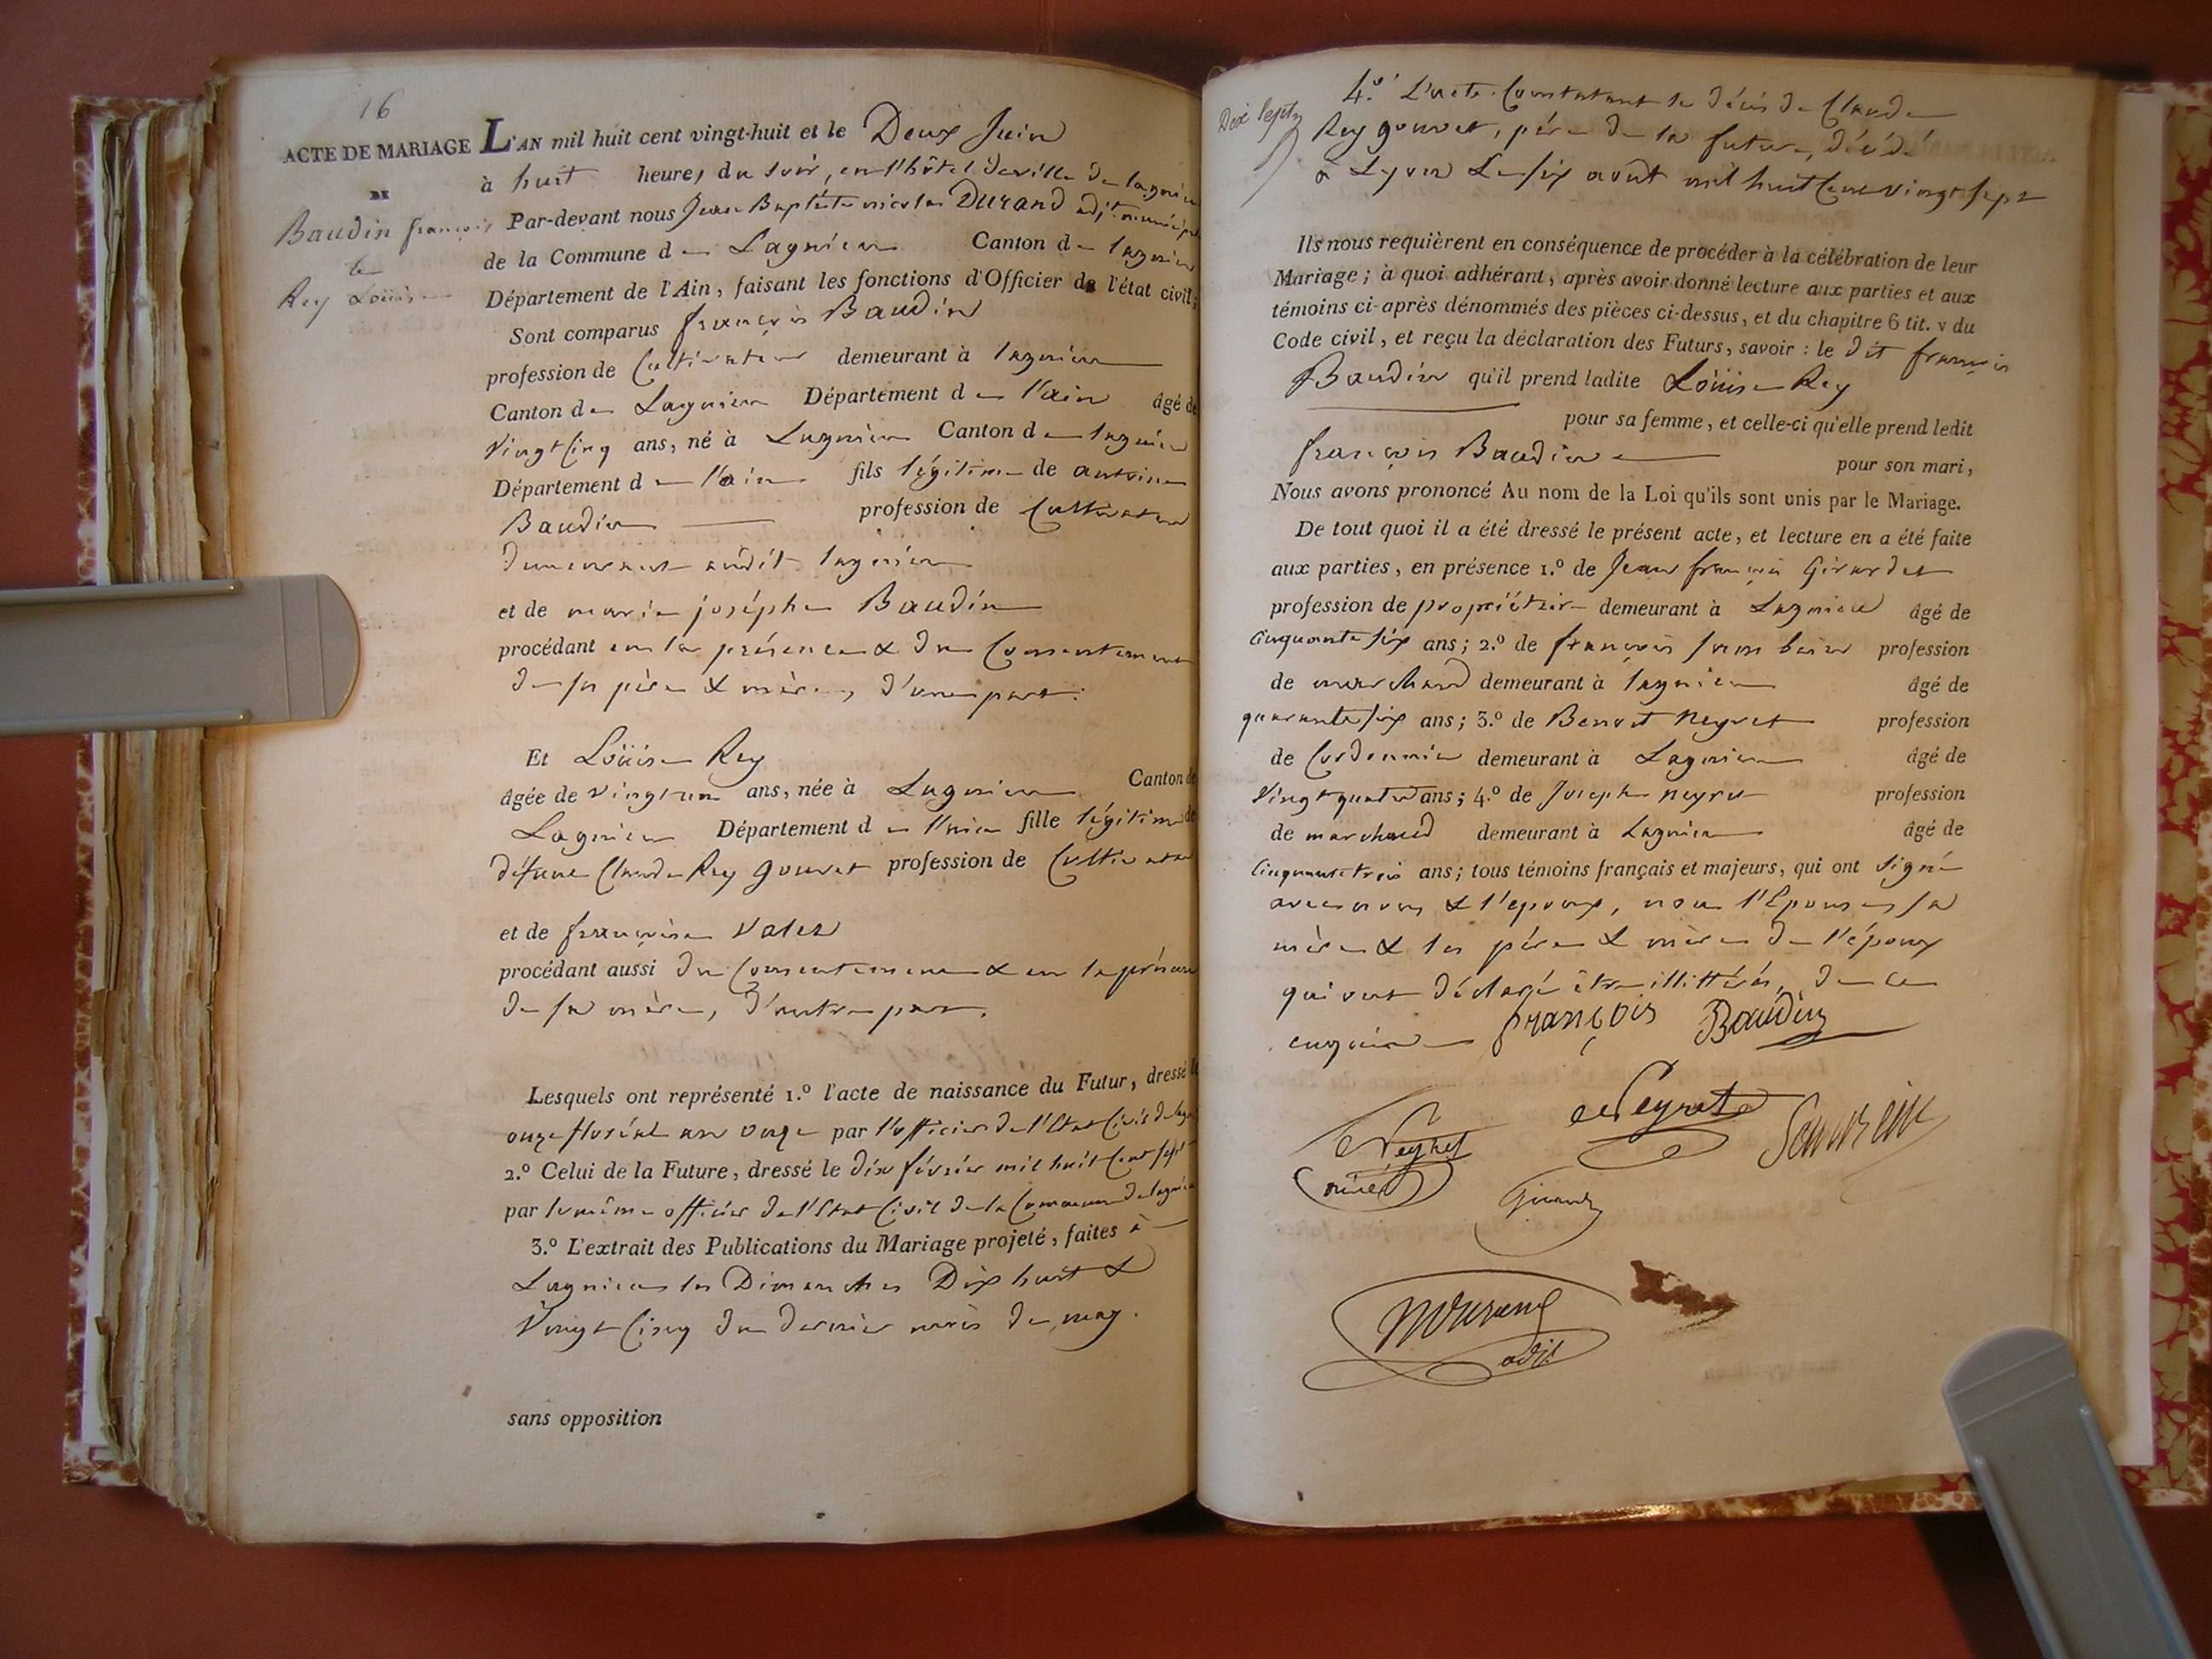 16
ACTE DE MARIAGE L'AN mil huit cent vingt-huit et le Deux Juin
DE
à huit heures du soir, en l'hôtel de ville de lagnieu
Baudin françois Par-devant nous Jean Baptiste nicolas DURAND adjt. municipal
&
de la Commune de Lagnieu Canton de lagnieu
Rey Loüise
Département de l'Ain, faisant les fonctions d'Officier de l'état civil;
Sont comparus françois Baudin
profession de Cultivateur demeurant à lagnieu
Canton de Lagnieu Département de l'ain âgé de
Vingt Cinq ans, né à Lagnieu Canton de lagnieu
Département de l'ain fils légitime de antoine
Baudin profession de Cultivateur
demeurant audit lagnieu
et de marie josèphe Baudin
procédant en la présence & du Consentement
de ses père & mère, d'une part.
Et Loüise Rey
âgée de vingt un ans, née à Lagnieu Canton de
Lagnieu Département de l'ain fille légitime de
défunt Claude Rey gouvet profession de Cultivateur
et de françoise Valer
procédant aussi du Consentement & en la présence
de sa mère, d'autre part.
Lesquels ont représenté 1.º l'acte de naissance du Futur, dressé le
onze floréal an onze par l'officier de l'Etat Civil de lagnieu
2.º Celui de la Future, dressé le dix février mil huit Cent sept
par le même officier de l'Etat Civil de la Commune de lagnieu
3.º L'extrait des Publications du Mariage projeté, faites à
Lagnieu les Dimanches Dix huit &
Vingt Cinq du dernier mois de may.
sans opposition
Dix Sept
4.º L'acte Constatant le décès de Claude
Rey gouvet, père de la future, décédé
à Lyon Le six août mil huit Cent vingt sept
Ils nous requièrent en conséquence de procéder à la célébration de leur
Mariage; à quoi adhérant, après avoir donné lecture aux parties et aux
témoins ci-après dénommés des pièces ci-dessus, et du chapitre 6 tit. v du
Code civil, et reçu la déclaration des Futurs, savoir: le dit françois
Baudin qu'il prend ladite Loüise Rey
pour sa femme, et celle-ci qu'elle prend ledit
françois Baudin pour son mari,
Nous avons prononcé Au nom de la Loi qu'ils sont unis par le Mariage.
De tout quoi il a été dressé le présent acte, et lecture en a été faite
aux parties, en présence 1.º de Jean françois Girardet
profession de propriétaire demeurant à Lagnieu âgé de
Cinquante six ans; 2.º de françois profession
de marchand demeurant à lagnieu âgé de
quarante six ans; 3.º de Benoit Neyret profession
de Cordonnier demeurant à Lagnieu âgé de
Vingt quatre ans; 4.º de Joseph neyret profession
de marchand demeurant à Lagnieu âgé de
Cinquante trois ans; tous témoins français et majeurs, qui ont signé
avec nous & l'epoux, non l'Epouse, sa
mère & les père & mère de l'époux
qui ont déclaré être illittérés, de ce
enquis françois Baudin
Neyret
Neyret
ainé
Girardet
NDurand
adjt